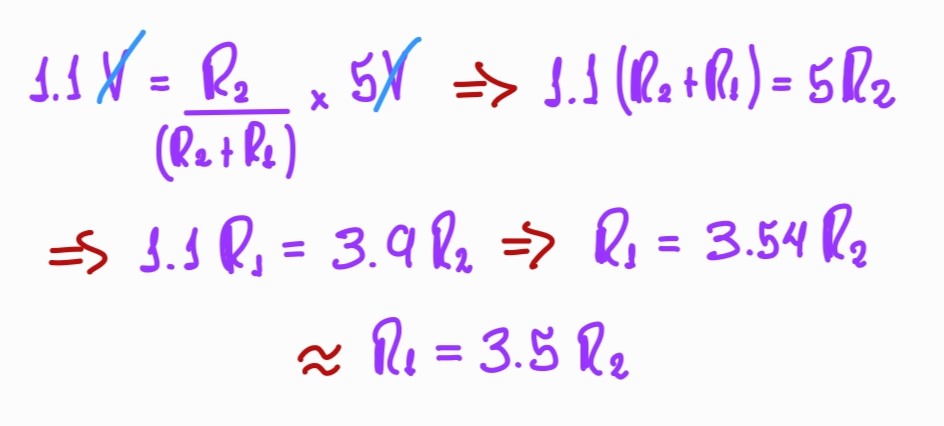 1.1 V = R₂/(R₂ + R₁) × 5V ⇒ 1.1 (R₂ + R₁) = 5R₂
⇒ 1.1 R₁ = 3.9 R₂ ⇒ R₁ = 3.54 R₂
≈ R₁ = 3.5 R₂